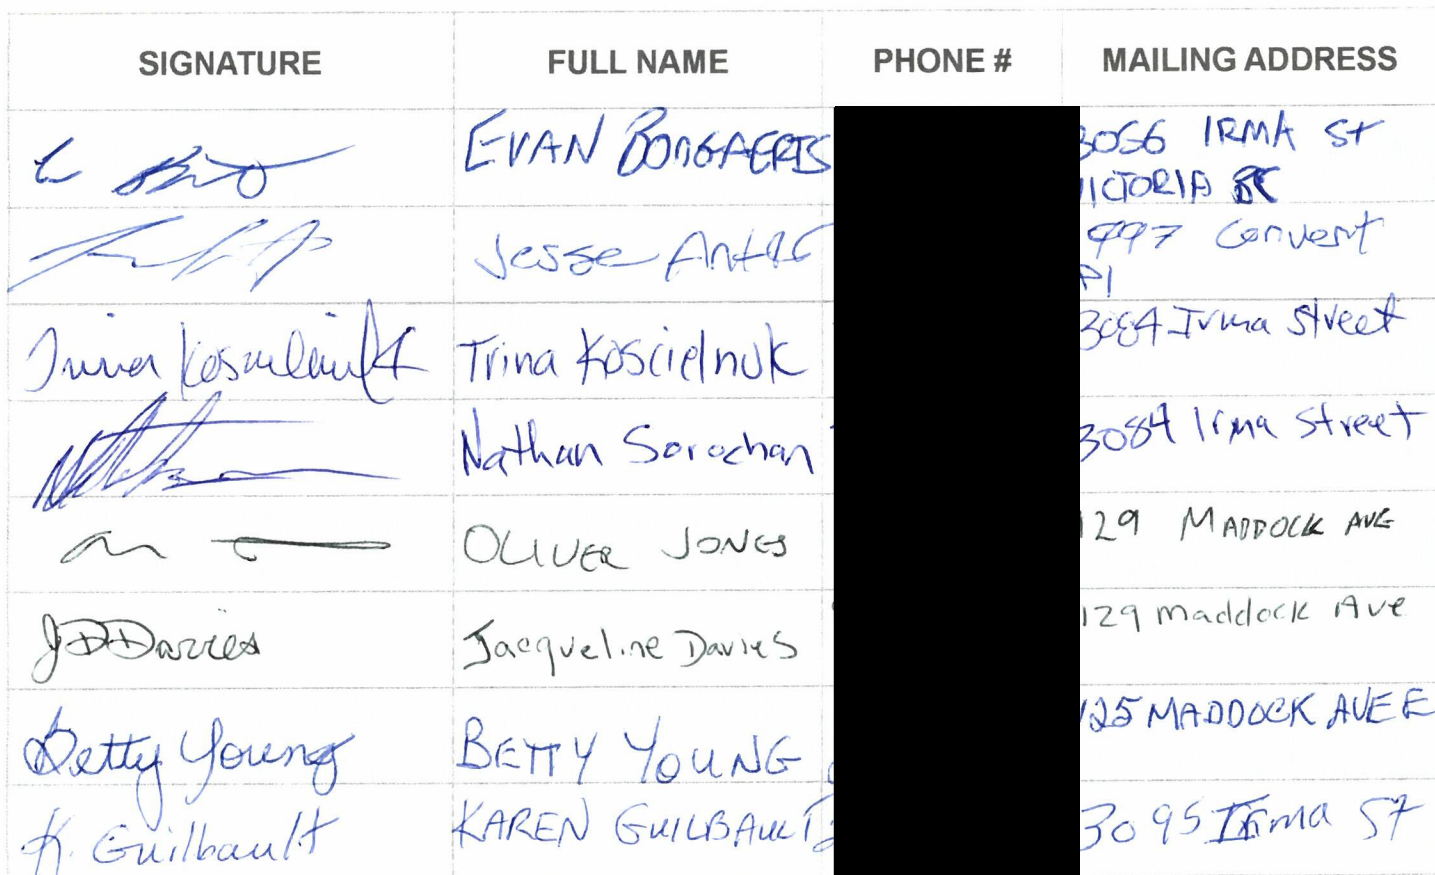 SIGNATURE FULL NAME PHONE # MAILING ADDRESS
EVAN BONGAERTS 3056 IRMA St
VICTORIA BC
Jesse 997 Convent
Pl
Trina Koscielnuk 3084 Irma Street
Nathan Sorochan 3084 Irma Street
OLIVER JONES 129 MADDOCK AVE
JDDavies Jacqueline Davies 129 Maddock Ave
Betty Young BETTY YOUNG 125 MADDOCK AVE E
K. Guilbault KAREN GUILBAULT 3095 Irma St